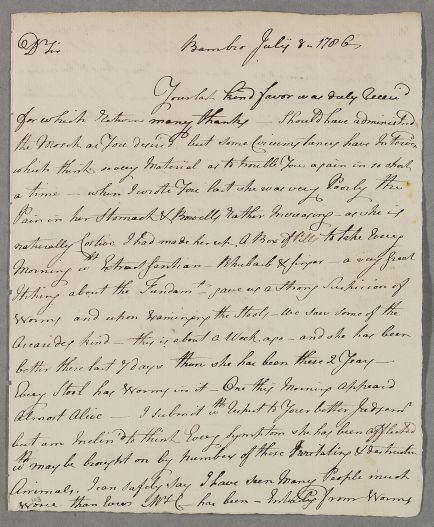 Dr Sir Bambro July 8 - 1786
Your last kind favor was duly Receiv'd
for which Return many thanks - Should have administred
the Merch as You desired but some Circumstances have
which think so very Material as to trouble You again in so short
a time - when I wrote You last she was very Poorly the
Pain in her Stomach & Bowells Rather Increasing - as she is
naturally Costive I had made her up A Box of Pills to take Every
Morning wth Extract Gentian - Rhubarb & Ginger - a very Great
Itching about the Fundamt - gave us a strong Suspicion of
Worms and upon Examining the Stools - we saw some of the
Ascarides kind - this is about a Week ago - and she has been
better these last 7 days than she has been these 2 Years -
Every Stool has Worms in it - One this Morning appeard
almost Alive - I submit wth respect to Your better Judgemt
but am Inclind to think Every Symptom she has been afflicted
wth may be brought on by number of those Irritating & destructive
Animals, I can safely Say I have seen Many People much
worse than Ever Mrs C- has been - Entirely from Worms